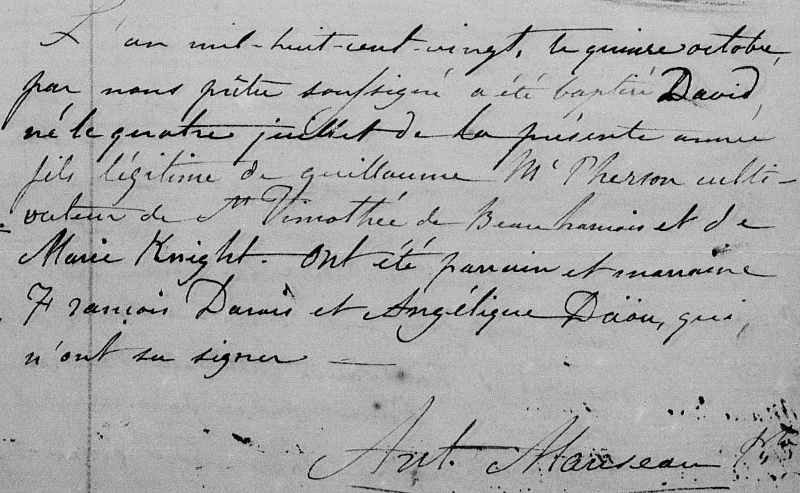 L'an mil-huit-cent-vingt, le quinze octobre,
par nous prêtre soussigné a été baptisé David,
né le quatre juillet de la présente année
fils légitime de guillaume Mc Pherson culti-
vateur de St Timothée de Beauharnois et de
Marie Knight. Ont été parrain et marraine
François Darais et Angélique Daou, qui,
n'ont su signer —
Ant. Manseau Ptre